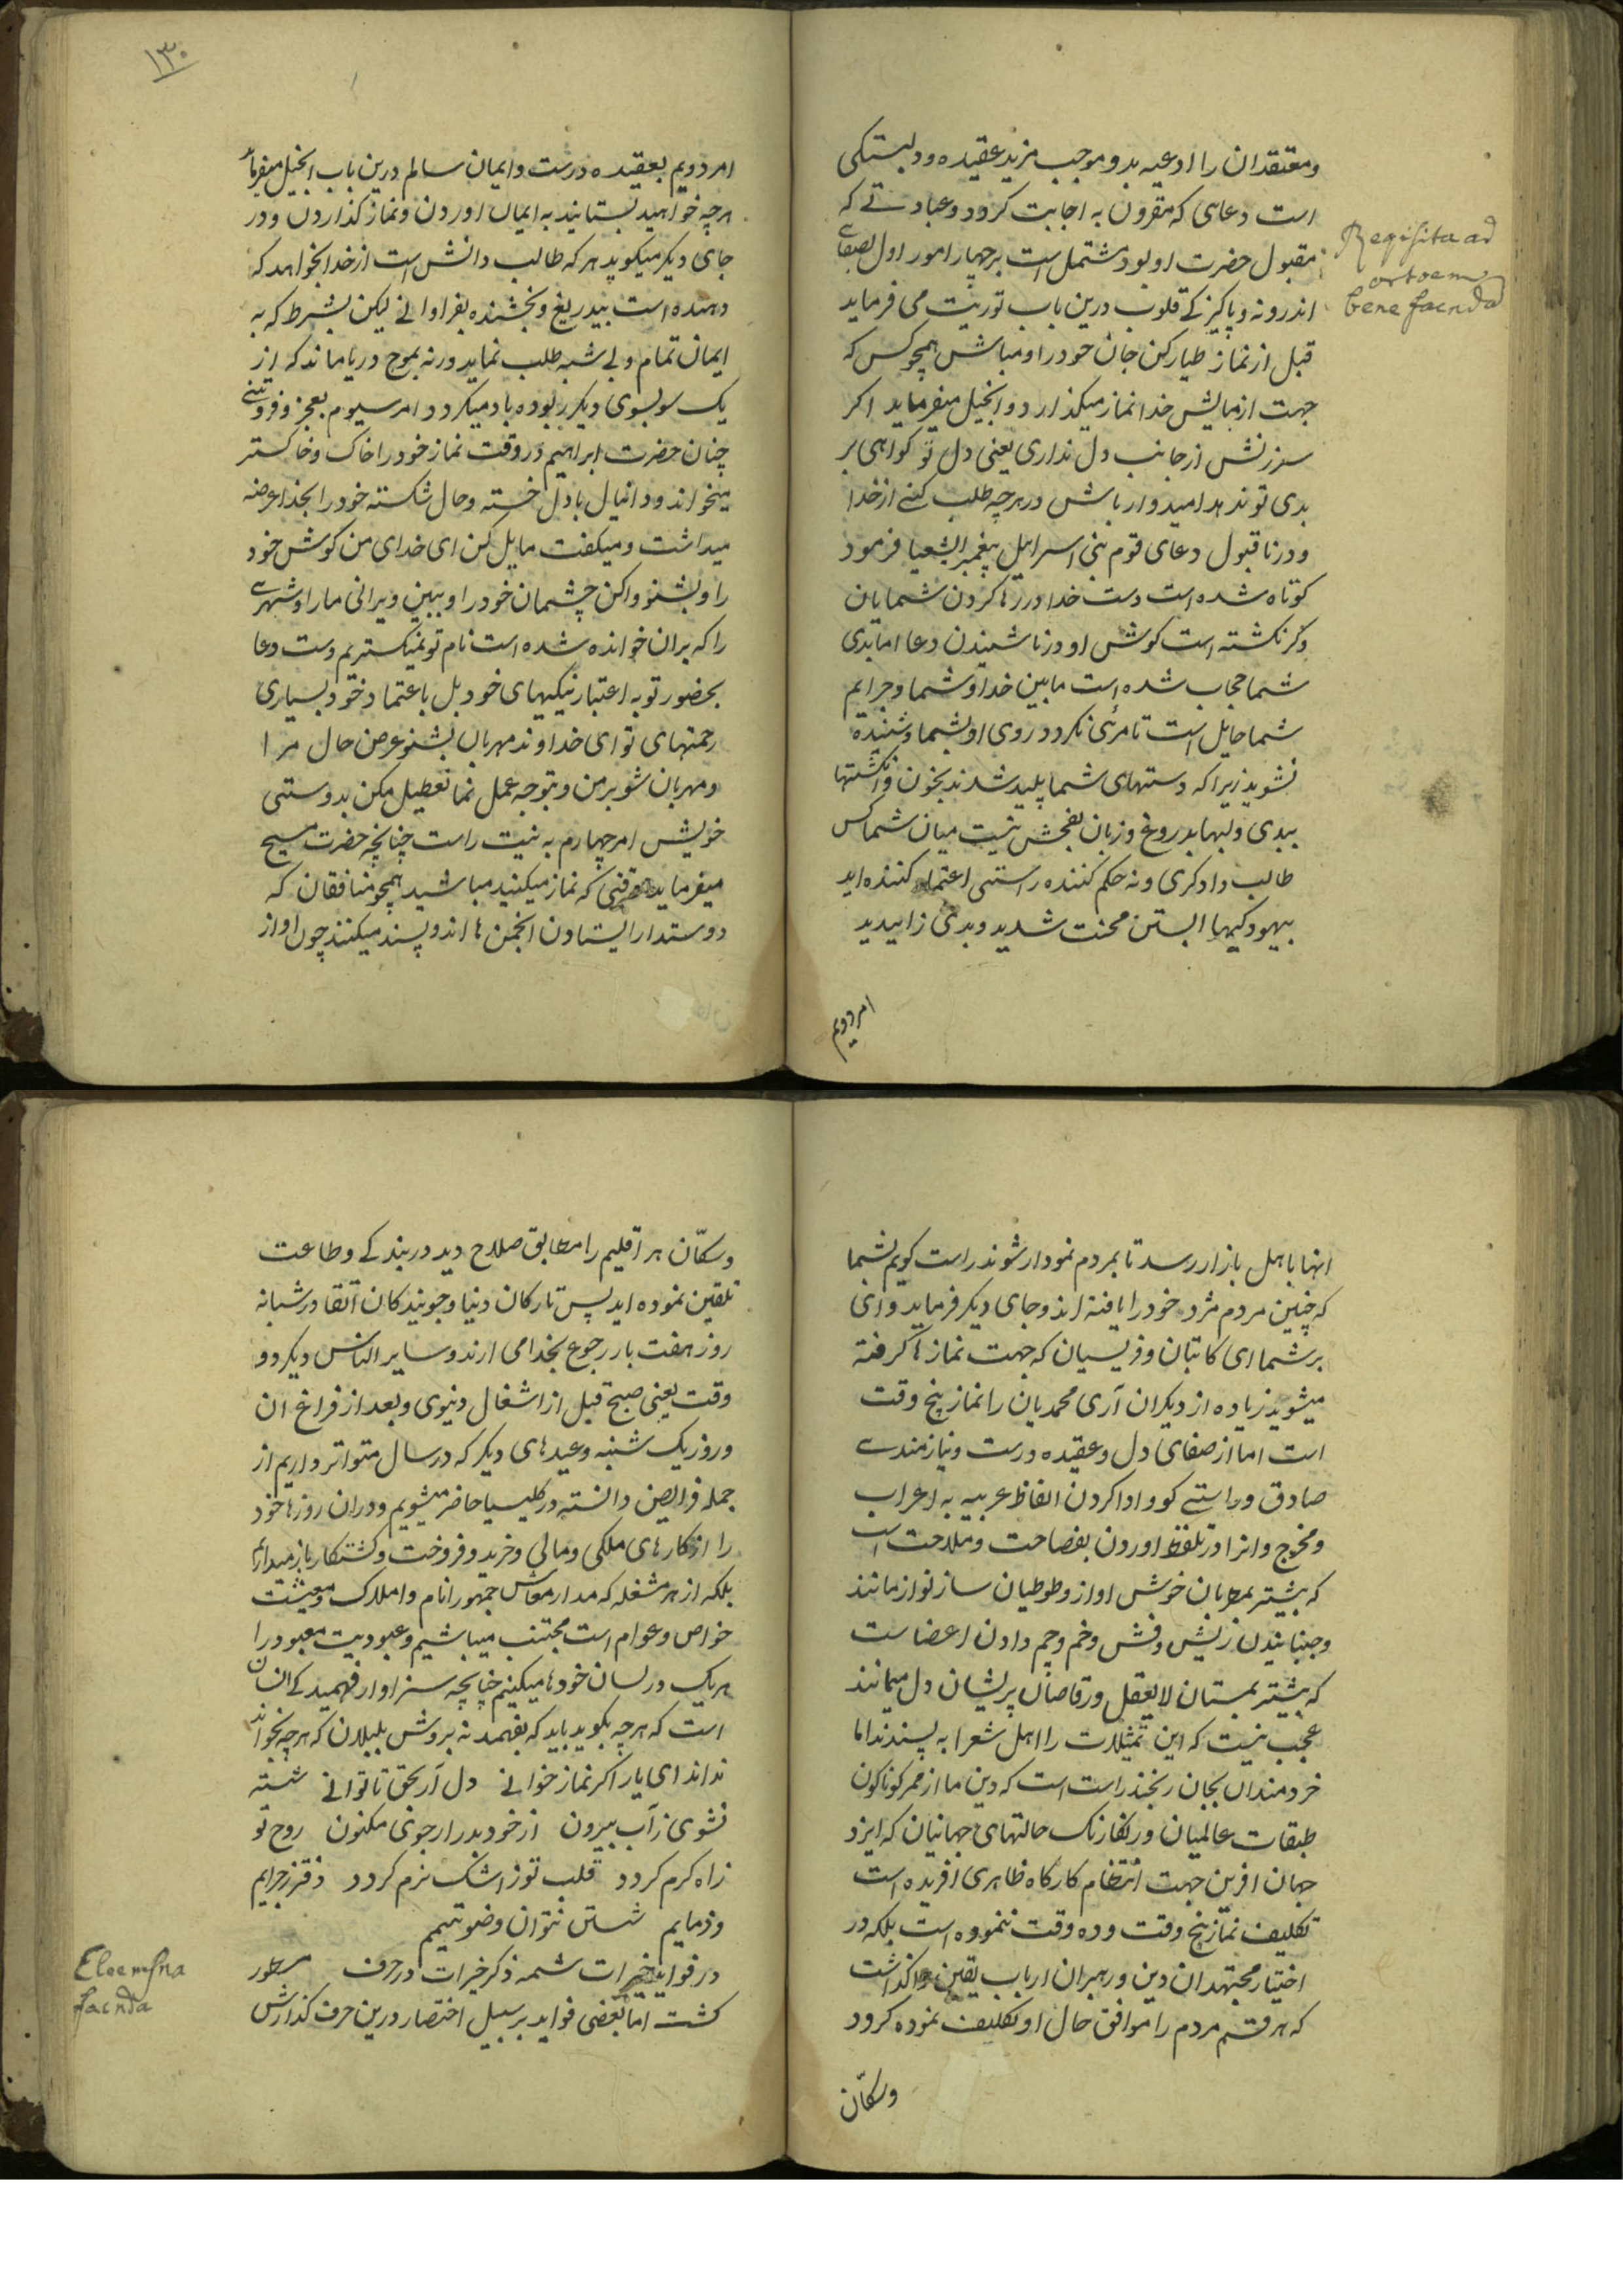 ومعتقدان را ادعیه بد و موجب مزید عقیده و دلبستکی
است دعاهی که مقرون به اجابت کردد و عبادتے که
مقبول حضرت او بود مشتمل است بر چهار امور اول بصفاے
اندرونه و پاکیزکے قلوب درین باب توریت می فرماید
قبل از نماز طیار کن جان خود را و مباش همچو کس که
جهت ازمایش خدا نماز میکذارد و انجیل میفرماید اکر
سرزنش از جانب دل نداری یعنی دل تو کواهی بر
بدی تو ندهد امیدوار باش در هرچه طلب کنے از خدا
و در ناقبول دعای قوم بنی اسراییل پیغمبر اشعیا فرمود
کوتاه شده است دست خدا در رها کردن شمایان
وکر نکشته است کوش او در ناشنیدن دعا اما بدی
شما حجاب شده است مابین خدا و شما و جرایم
شما حایل است تا مرئی نکردد روی او بشما و شنیده
نشوید زیرا که دستهای شما پلید شدند بخون و انکشتها
ببدی و لبها بدروغ و زبان بفحش نیست میان شما کس
طالب دادکری و نه حکم کننده راستی اعتماد کننده اید
بیهودکیها ابستن محنت شدید و بدی زاییدید
امر دویم
Reqisita ad
ortoem
bene facnda
۱۳۰
امر دویم بعقیده درست و ایمان سالم درین باب انجیل میفرماید
هرچه خواهید بستانید به ایمان اوردن و نماز کذاردن و در
جای دیکر میکوید هر که طالب دانش است از خدا بخواهد که
دهنده است بیدریغ و بخشنده بفراوانے لیکن بشرط که به
ایمان تمام و بے شبه طلب نماید ورنه بموج دریا ماند که از
یک سو بسوی دیکر ربوده باد میکردد امر سیوم بعجز و فروتنے
چنان حضرت ابراهیم در وقت نماز خود را خاک و خاکستر
میخواند و دانیال با دل خسته و حال شکسته خود را بخدا عرضه
میداشت و میکفت مایل کن ای خدای من کوش خود
را و بشنو واکن چشمان خود را و ببین ویرانی ما را و شهرے
را که بران خوانده شده است نام تو نمیکستریم دست دعا
بحضور تو به اعتبار نیکیهای خود بل باعتماد خود بسیاری
رحمتهای تو ای خداوند مهربان بشنو عرض حال مرا
و مهربان شو بر من و بتوجه عمل نما تعطیل مکن بدوستی
خویش امر چهارم به نیت راست چنانچه حضرت مسیح
میفرماید وقتی که نماز میکنید مباشید همچو منافقان که
دوستدار ایستادن انجمن ها اند و پسند میکنند چون اواز
انها باهل بازار رسد تا بمردم نمودار شوند راست کویم بشما
که چنین مردم مزد خود را یافته اند و جای دیکر فرماید وای
بر شما ای کاتبان و فریسیان که جهت نمازها کرفته
میشوید زیاده از دیکران آری محمدیان را نماز پنج وقت
است اما از صفای دل و عقیده درست و نیازمندے
صادق و راستے کو و ادا کردن الفاظ عربیه به اعراب
و مخرج و انرا در تلفظ اوردن بفصاحت و ملاحت است
که بیشتر بمطربان خوش اواز و طوطیان ساز نواز مانند
و جنبانیدن ریش و فش و خم و چم دادن اعضاست
که بیشتر بمستان لایعقل و رقاصان پریشان دل میمانند
عجب نیست که این تمثیلات را اهل شعرا به پسندند اما
خردمندان بجان رنجند راست است که دین ما از ممر کوناکون
طبقات عالمیان و رنکارنک حالتهای جهانیان که ایزد
جهان افرین جهت انتظام کارکاه ظاهری افریده است
تکلیف نماز پنج وقت و ده وقت ننموده است بلکه در
اختیار مجتهدان دین و رهبران ارباب یقین واکذاشت
که هر قسم مردم را موافق حال او تکلیف نموده کردد
وسکّان
وسکّان هر اقلیم را مطابق صلاح دید در بندکے و طاعت
تلقین نموده اید پس تارکان دنیا و جویندکان اتقا در شبانه
روز هفت بار رجوع بخدا می ارند و سایر الناس دیکر دو
وقت یعنی صبح قبل از اشغال دنیوی و بعد از فراغ ان
و روز یک شنبه و عیدهای دیکر که در سال متواتر داریم از
جمله فرایض دانسته در کلیسیا حاضر میشویم و دران روزها خود
را از کارهای ملکی و مالی و خرید و فروخت و کشتکار باز میداریم
بلکه از هر مشغله که مدار معاش جمهور انام و املاک و معیشت
خواص و عوام است مجتنب میباشیم و عبودیت معبود را
هریک در لسان خودها میکنیم چنانچه سزاوار فهمیدکے انسان
است که هرچه بکوید باید که بفهمد نه بروش بلبلان که هرچه بخواند
نداند ای یار اکر نماز خوانے دل آر بحق تا توانے شسته
نشوی ز آب بیرون از خود بدر ار جوی مکنون روح تو
ز اه کرم کردد قلب تو ز اشک نرم کردد دفتر ز جرایم
و ذمایم شستن نتوان وضو تیمم
در فواید خیرات شمه ذکر خیرات در حرف مسطور
کشت اما بعضی فواید بر سبیل اختصار درین حرف کذارش
Eloemsna
facnda